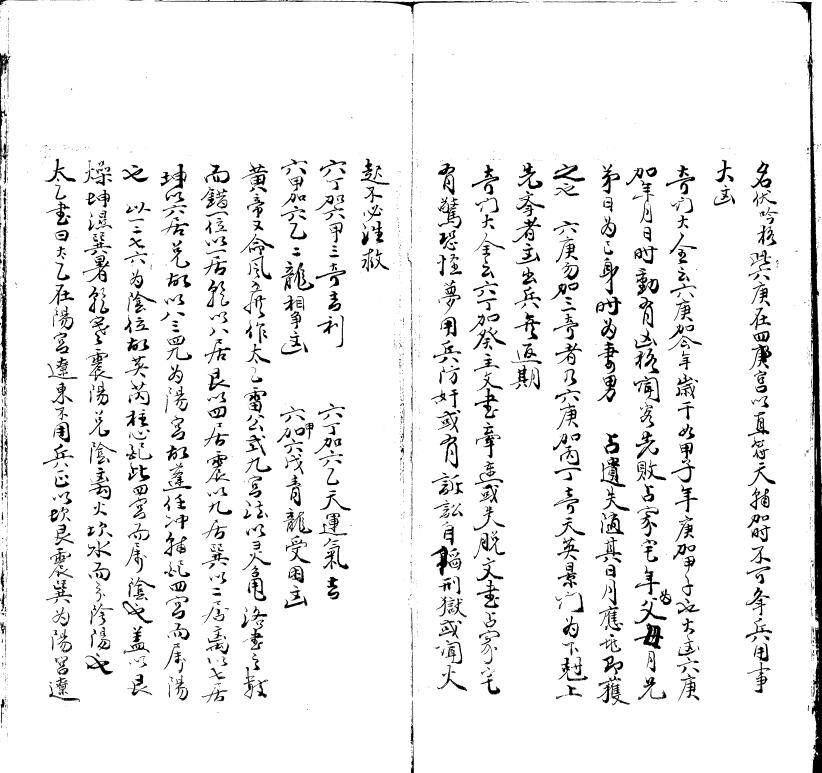 名伏吟格此六庚在四庚宮以直符天輔加时不可爭兵用事
大凶
奇门大全云六庚加今年歲干如甲子年庚加甲子也大凶六庚
加年月日时動有凶格闻客先敗占家宅年为父母月兄
弟日为己身时为妻男 占遺失適其日月應是即獲
之也 六庚勿加三奇者乃六庚加丙丁奇天英景门为下尅上
先舉者主出兵無返期
奇门大全云六丁加癸主文書牽連或失脱文書占家宅
有驚恐怪夢用兵防奸或有訴訟自稲刑獄或闻火
起不必往救
六丁加六甲三奇吉利 六丁加六乙天運氣吉
六甲加六乙二龍相爭凶 六甲加六戊青龍受困凶
黄帝又命風后作太乙雷公式九宮法以灵龟洛書之數
而錯一位以一居乾以八居艮以四居震以九居巽以二居離以七居
坤以六居兑故以八三四九为陽宮故蓬任冲輔是四宮而属陽
也 以一二七六为陰位故英芮柱心是此四宮而属陰也蓋以艮
燥坤濕巽暑乾寒震陽兑陰离火坎水而分陰陽也
太乙書曰太乙在陽宮遼東不用兵正以坎艮震巽为陽宮遼